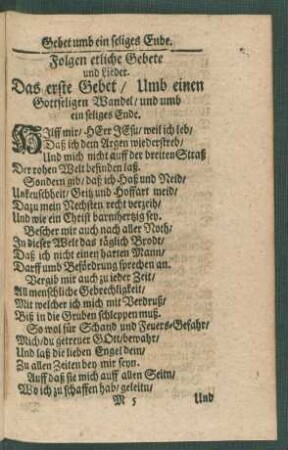 Gebet umb ein seliges Ende.
Folgen etliche Gebete
und Lieder.
Das erste Gebet / Umb einen
Gottseligen Wandel / und umb
ein seliges Ende.
HIlff mir / HErr JEsu / weil ich leb /
Daß ich dem Argen wiederstreb /
Und mich nicht auff der breiten Straß
Der rohen Welt befinden laß.
Sondern gib / daß ich Haß und Neid /
Unkeuschheit / Geitz und Hoffart meid /
Dazu mein Nechsten recht verzeih /
Und wie ein Christ barmhertzig sey.
Bescher mir auch nach aller Noth /
In dieser Welt das täglich Brodt /
Daß ich nicht einen harten Mann /
Darff umb Befördrung sprechen an.
Vergib mir auch zu jeder Zeit /
All menschliche Gebrechligkeit /
Mit welcher ich mich mit Verdruß /
Biß in die Gruben schleppen muß.
So wol für Schand und Feuers-Gefahr /
Mich / du getreuer GOtt / bewahr /
Und laß die lieben Engel dein /
Zu allen Zeiten bey mir seyn.
Auff daß sie mich auff allen Seitn /
Wo ich zu schaffen hab / geleitn /
M 5 Und